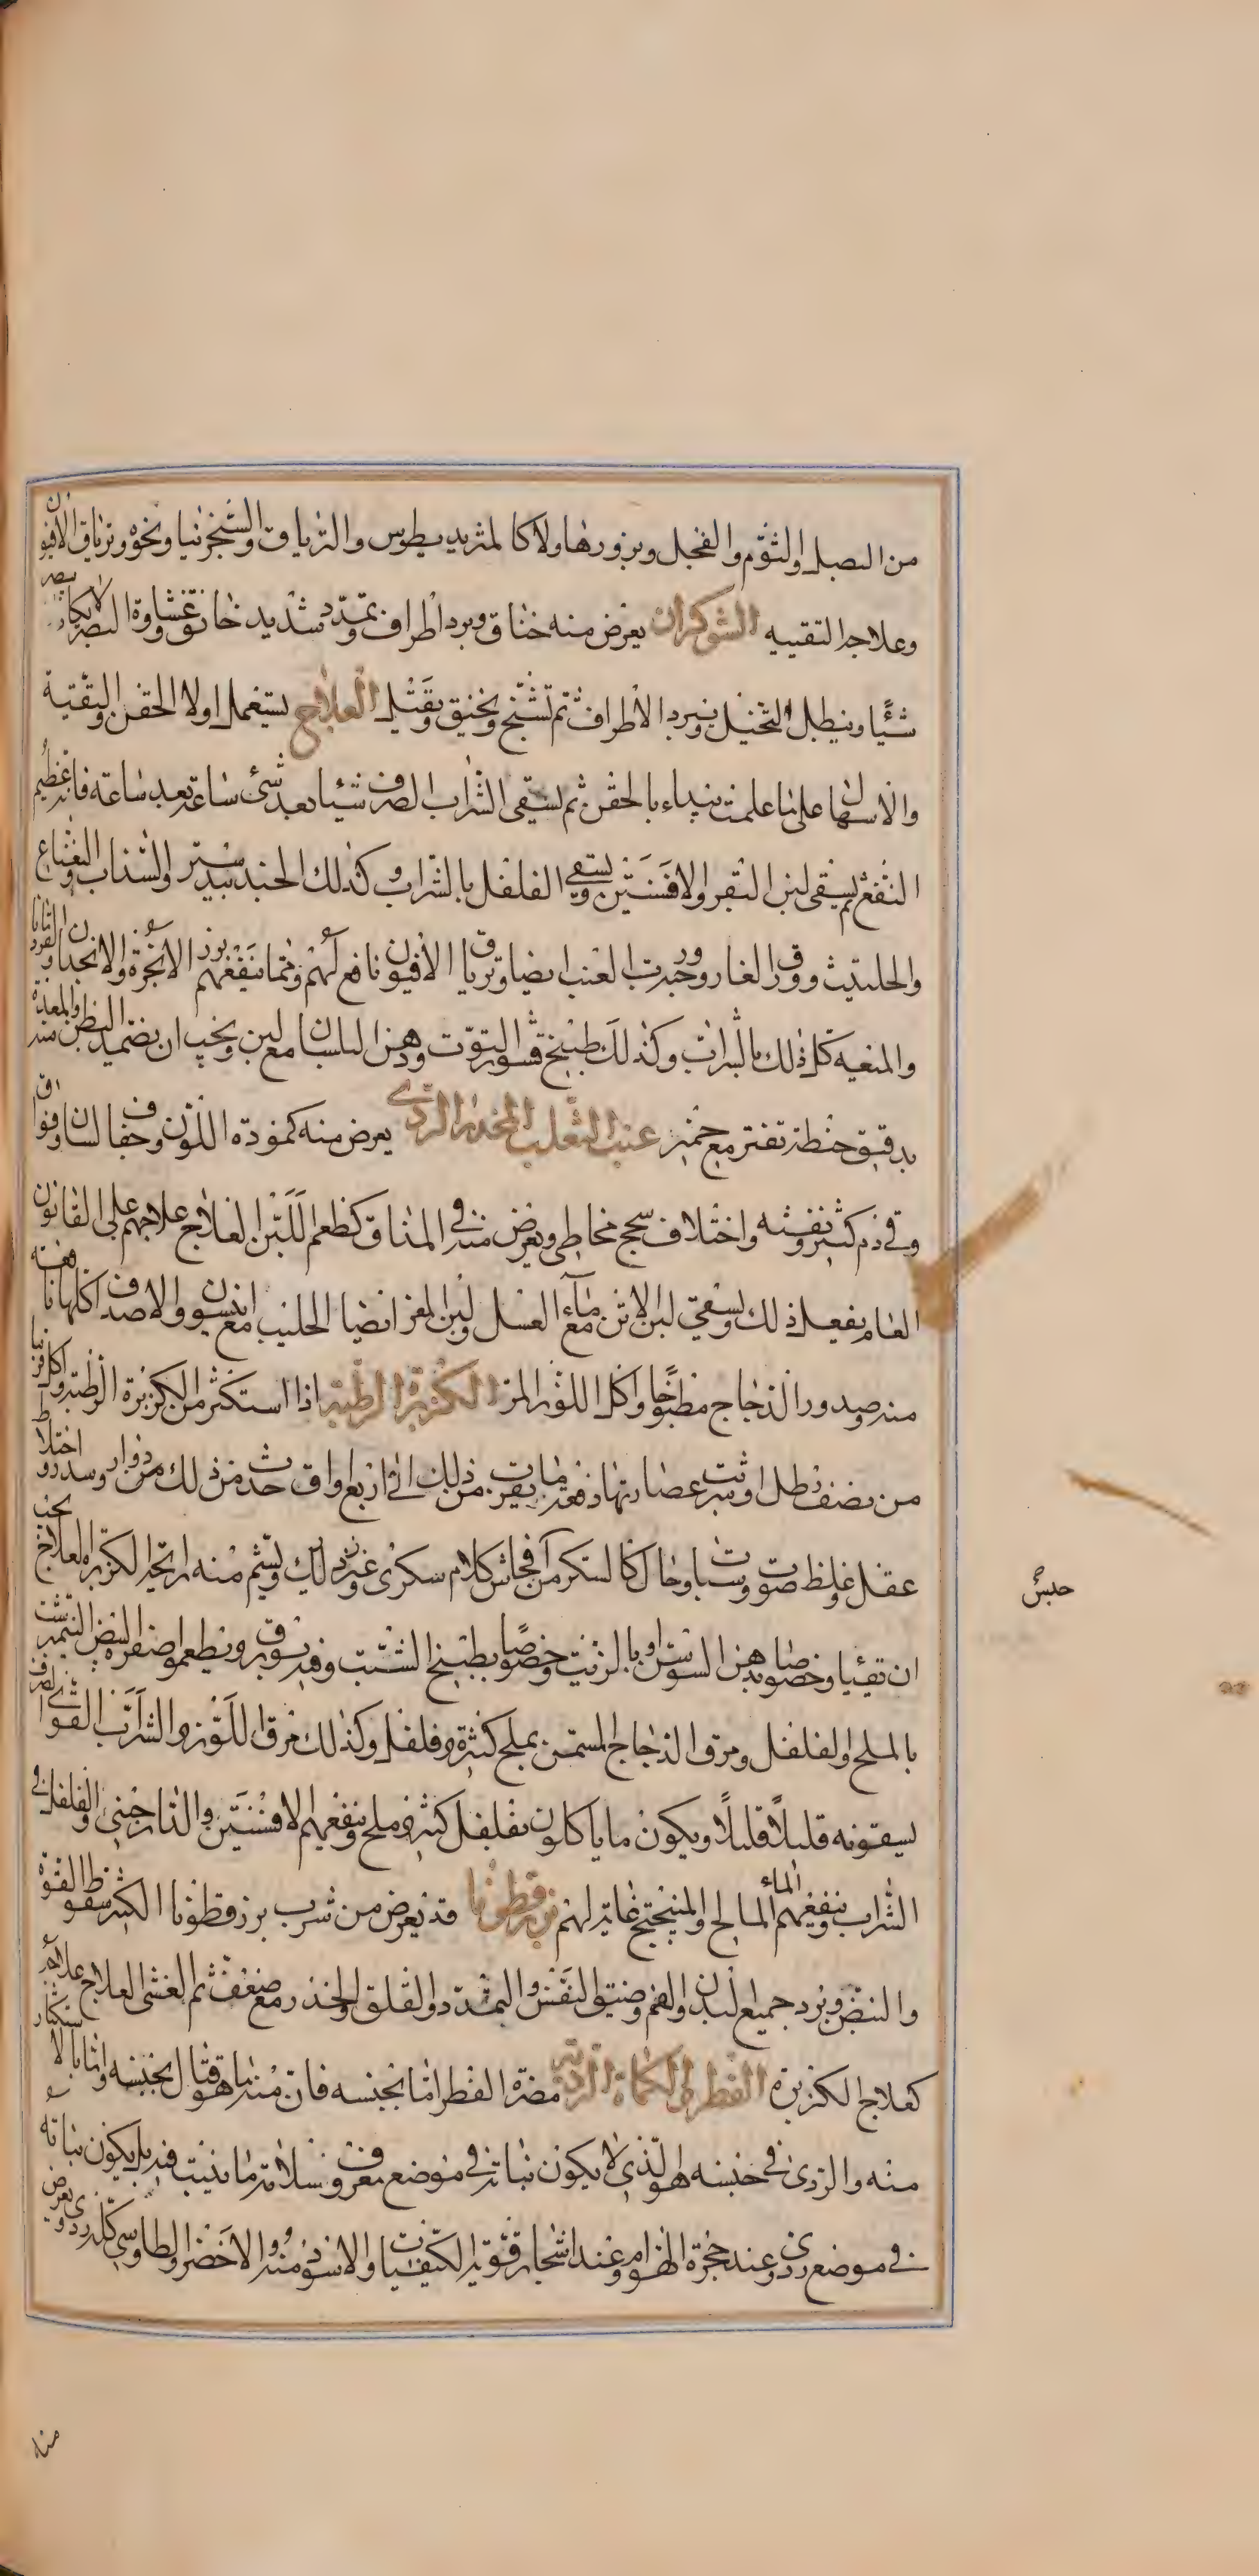 من البصل والثوم والفجل وبزورها ولا كالمثريديطوس والترياق والشجرنيا ونحوه وترياق الافيون
وعلاجه التقيه الشوكران يعرض منه خناق وبرد اطراف وتمدد شديد خانق وغشاوة البصر لا يكاد يبصر
شئًا ويبطل التخيل ويبرد الاطراف ثم تشنج ويخنق ويقتل العلاج يستعمل اولا الحقن والتقية
والاسهال على ما علمت يبداء بالحقن ثم يسقى الشراب الصرف شيئا بعد شئ ساعة بعد ساعة فانه عظيم
النفع ثم يسقى لبن البقر والافسنتين ويسقى الفلفل بالشراب وكذلك الجندبيدستر والسذاب والنعناع
والحلتيت وورق الغار وحب رب العنب ايضا وترياق الافيون نافع لهم ومما ينفعهم بزر الانجرة والانجدان والقردمانا
والميعه كل ذلك بالشراب وكذلك طبيخ قشور التوت ودهن البلسان مع لبن ويجب ان يضمد البطن والمعدة منه
بدقيق حنطة تفتر مع خمر عنب الثعلب المخدر الردى يعرض منه كمودة اللون وجفاف لسان وفواق
وقى دم كثير ونفثه واختلاف سحج مخاطى ويعرض منه فى المذاق كطعم اللبن العلاج علاجهم على القانون
العام يفعل ذلك ويسقى لبن الاتن مع مآء العسل ولبن المعز ايضا الحليب مع انيسون والاصداف كلها نافعته
منه وصدور الدجاج مطبوخا واكل اللوز المر الكزبرة الرطبة اذا استكثر من الكزبرة الرطبة واكل قريبا
من نصف رطل او شرب عصارتها دفعة ما يقرب من ذلك الى اربع اواق حدث من ذلك من دوار وسدر واختلاط
عقل وغلظ صوت وسبات وحال كالسكر مآ فحاش كلام سكرى وغير ذلك ويشم منه رايحة الكزبره العلاج يجب
ان تقيئا وخصوصا بدهن السوسن او بالزيت وخصوصًا بطبيخ الشبت وفيه بورق ويطعموا صفرة البيض النيمرشت
بالملح والفلفل ومرق الدجاج المسمن بملح كثيرة وفلفل وكذلك مرق اللوز والشراب القوى الصرف
يسقونه قليلاً قليلاً ويكون ما ياكلون بفلفل كثير وملح وينفعهم الافسنتين والدارجينى والفلفل فى
الشراب وينفعهم الماء المالح والميبختج غايته لهم بزرقطونا قد يعرض من شرب بزرقطونا الكثير سقوط القوة
والنبض وبرد جميع البدن والغم وضيق النفس والتمدد والقلق والخدر مع ضعف ثم الغشى العلاج علاجه
كعلاج الكزبرة الفطر والكماة الردية مضرة الفطر اما بجنسه فان منه ما هو قتال بجنسه واما بالاستكثار
منه والردى فى جنسه هو الذى لا يكون نباته فى موضع معروف بسلامة ما ينبت فيه بل يكون نباته
فى موضع ردى وعند حجرة الهوام وعند اشجار قوية الكيفيات والاسود منه والاخضر والطاوسى كله ردى ويعرض
منه